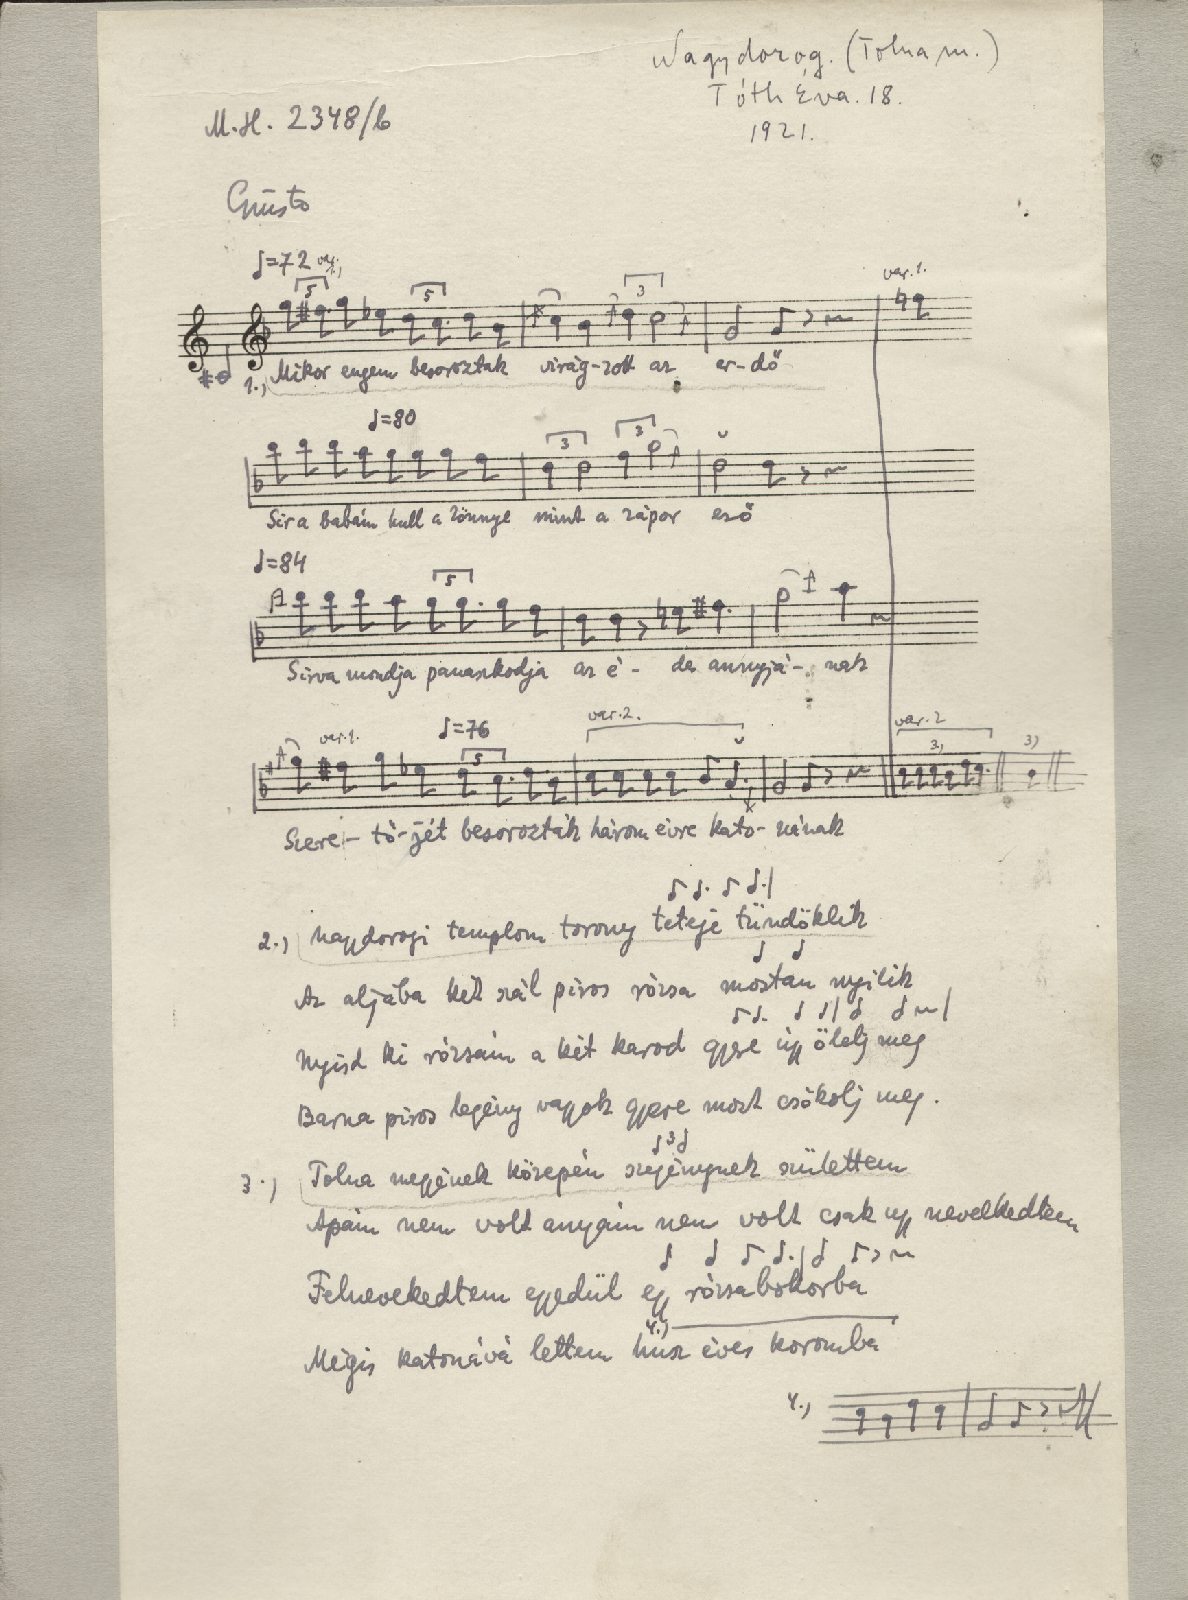 Nagydorog. (Tolna m.)
Tóth Éva. 18.
1921.
M.H. 2348/b
Giusto
♩=72 var. 1.,
5 5 3
var. 1.
1., Mikor engem besoroztak virág-zott az er-dő
♩=80
3 3
Sir a babám hull a könnye mint a zápor eső
♩=84
5
Sirva mondja panaszkodja az é- des annyjá- nak
var. 1. ♩=76 var. 2. var. 2
5 3, 3)
Szere- tő-jét besorozták három évre kato- nának
2., Nagydorogi templom torony teteje tündöklik
Az aljába két szál piros rózsa mostan nyilik
Nyisd ki rózsám a két karod gyere úgy ölelj meg
Barna piros legény vagyok gyere most csókolj meg.
3
3., Tolna megyének közepén szegénynek születtem
Apám nem volt anyám nem volt csak ugy nevelkedtem
Felnevekedtem egyedül egy rózsabokorba
4.)
Mégis katonává lettem husz éves koromba
4.,